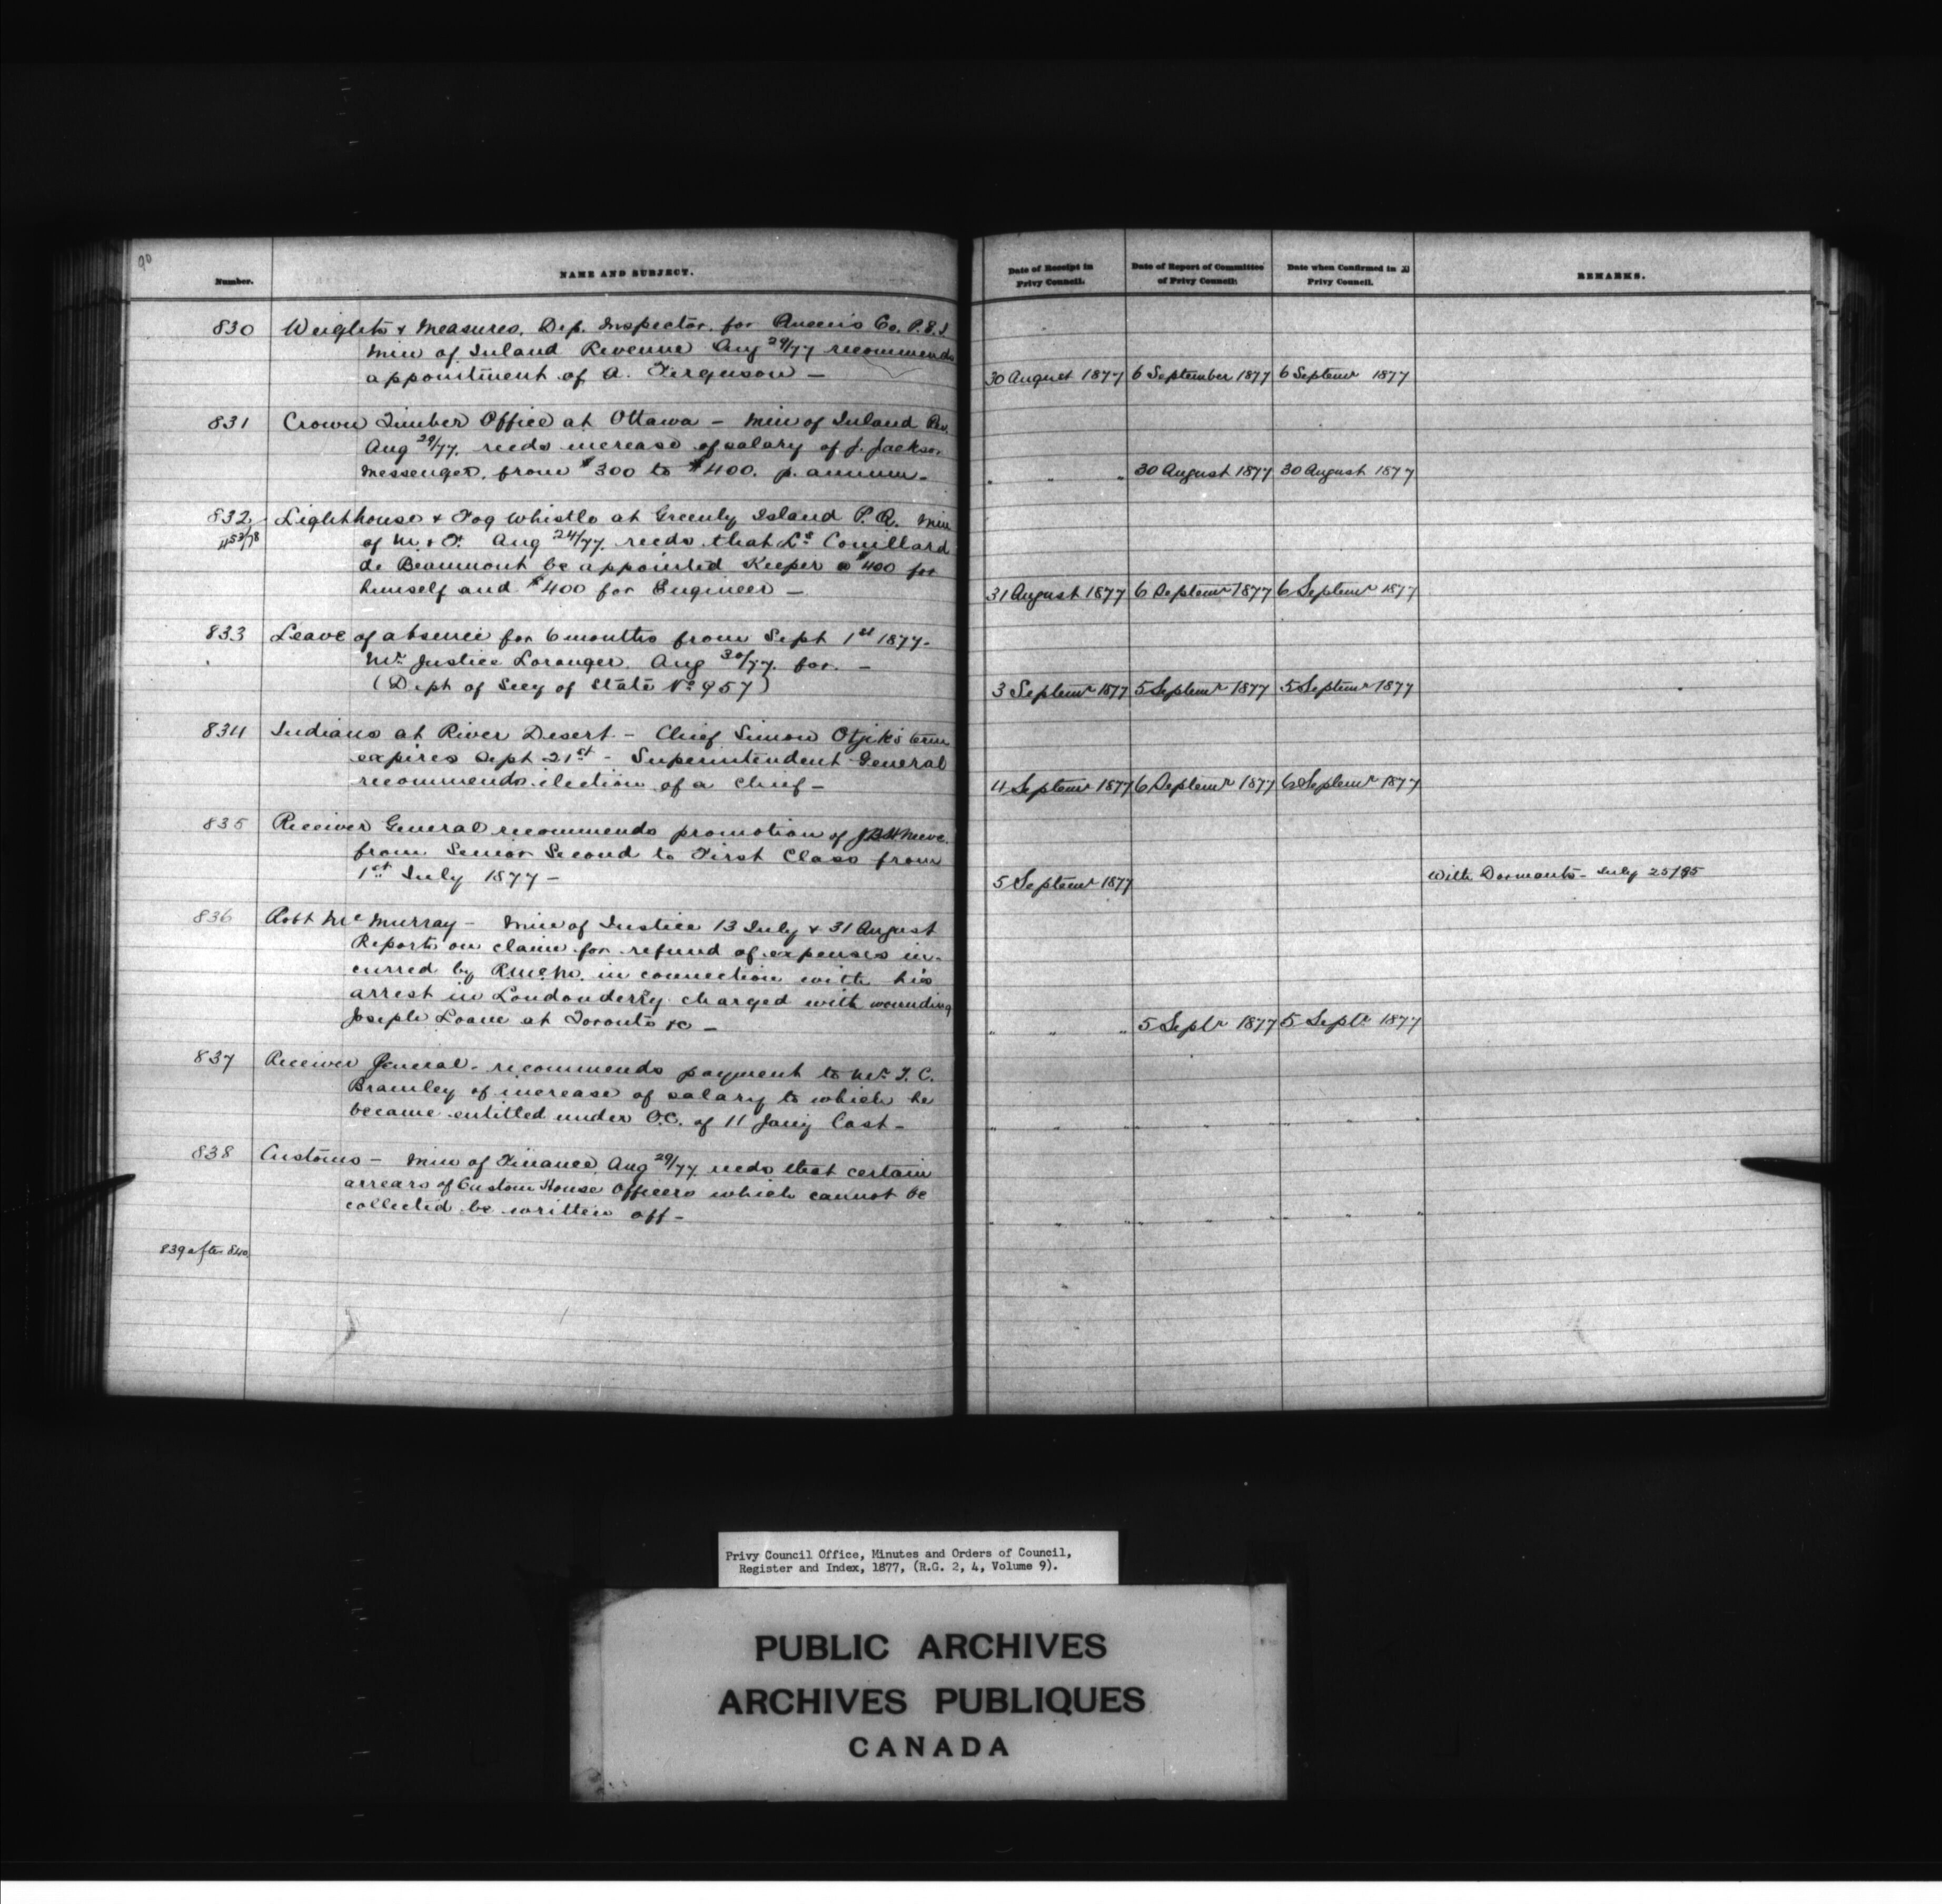 90
Number.
NAME AND SUBJECT.
Date of Receipt in Privy Council.
Date of Report of Committee of Privy Council.
Date when Confirmed in Privy Council.
REMARKS.
830 Weights & Measures, Dep. Inspector for Queen's Co. P.E.I
Min of Inland Revenue Aug 29/77 recommends
appointment of A. Ferguson —
30 August 1877 6 September 1877 6 Septemr 1877
831 Crown Timber Office at Ottawa — Min of Inland Rev.
Aug 29/77. recds increase of salary of J. Jackson
Messenger, from $300 to $400. p. annum —
" " " 30 August 1877 30 August 1877
832 Lighthouse & Fog Whistle at Greenly Island P.Q. Min
of M. & F. Aug 24/77. recds that Ls Couillard
de Beaumont be appointed Keeper @ $400 for
himself and $400 for Engineer —
31 August 1877 6 Septemr 1877 6 Septemr 1877
833 Leave of absence for 6 months from Sept 1st 1877.
Mr. Justice Loranger. Aug 30/77. for. —
(Dept of Secy of State No 957)
3 Septemr 1877 5 Septemr 1877 5 Septemr 1877
834 Indians at River Desert — Chief Simon Otjik's term
expires Sept 21st — Superintendent General
recommends election of a Chief —
4 Septemr 1877 6 Septemr 1877 6 Septemr 1877
835 Receiver General recommends promotion of
from Senior Second to First Class from
1st July 1877 —
5 Septemr 1877 With Dormants — July 25/85
836 Robt McMurray — Min of Justice 13 July & 31 August
Reports on claim for refund of expenses in-
curred by R.McM. in connection with his
arrest in Londonderry charged with wounding
Joseph Loane at Toronto &c —
" " " 5 Septr 1877 5 Septr 1877
837 Receiver General. recommends payment to Mr. T. C.
Bramley of increase of salary to which he
became entitled under O.C. of 11 Jany last —
" " " " " " "
838 Customs — Min of Finance Aug 29/77. recds that certain
arrears of Custom House Officers which cannot be
collected be written off —
" " " " " " "
839 after 840
Privy Council Office, Minutes and Orders of Council,
Register and Index, 1877, (R.G. 2, 4, Volume 9).
PUBLIC ARCHIVES
ARCHIVES PUBLIQUES
CANADA